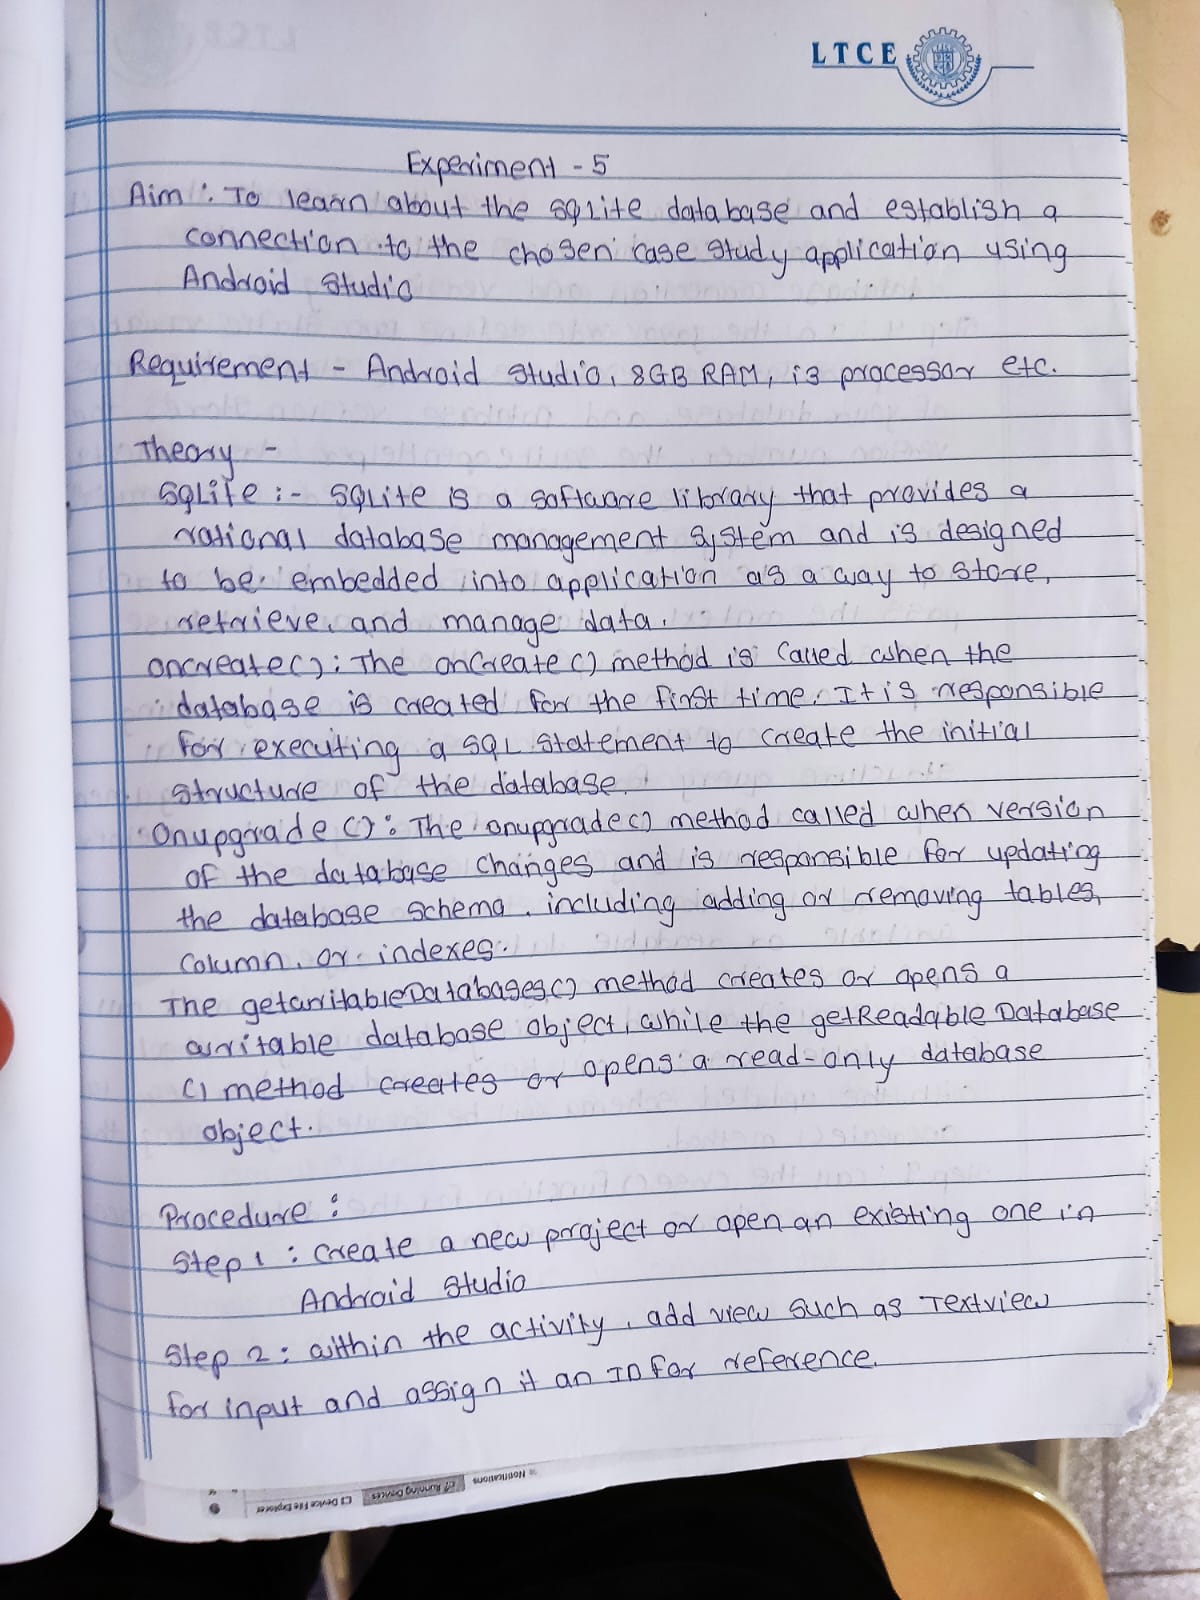 LTCE
Experiment - 5
Aim : To learn about the sqlite database and establish a
connection to the chosen case study application using
Android Studio
Requirement - Android Studio, 8GB RAM, i3 processor etc.
Theory -
SQLite :- SQLite is a software library that provides a
rational database management system and is designed
to be embedded into application as a way to store,
retrieve, and manage data.
oncreate() : The onCreate() method is called when the
database is created for the first time. It is responsible
for executing a SQL statement to create the initial
structure of the database.
Onupgrade() : The onupgrade() method called when version
of the database changes and is responsible for updating
the database schema, including adding or removing tables,
column, or indexes.
The getwritableDatabases() method creates or opens a
writable database object, while the getReadable Database
() method creates or opens a read-only database
object.
Procedure :
Step 1 : Create a new project or open an existing one in
Android Studio
Step 2 : within the activity, add view such as Textview
for input and assign it an ID for reference.
Notifications
Running Devices
Device File Explorer